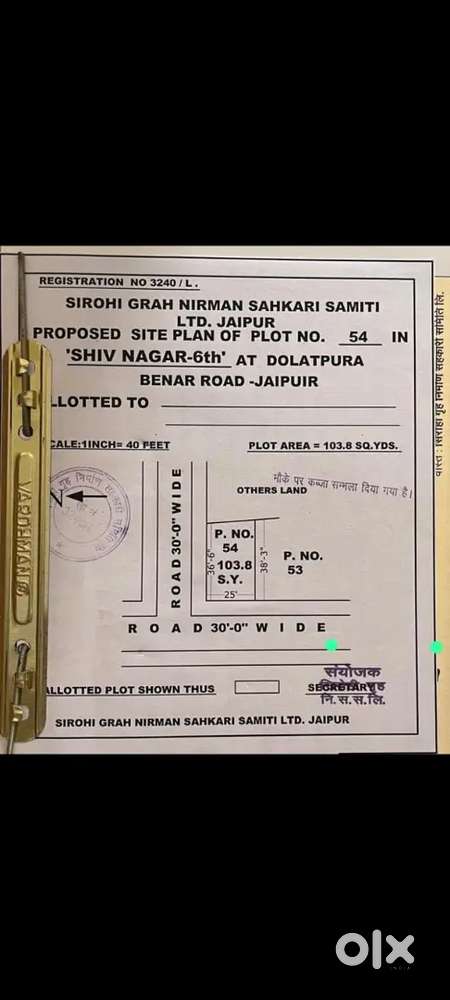 REGISTRATION NO 3240 / L .
SIROHI GRAH NIRMAN SAHKARI SAMITI
LTD. JAIPUR
PROPOSED SITE PLAN OF PLOT NO. 54 IN
'SHIV NAGAR-6th' AT DOLATPURA
BENAR ROAD -JAIPUIR
LLOTTED TO
CALE:1INCH= 40 FEET
PLOT AREA = 103.8 SQ.YDS.
मौके पर कब्जा सम्भला दिया गया है।
OTHERS LAND
N
ROAD 30'-0" WIDE
P. NO.
54
103.8
S.Y.
36'-6"
38'-3"
25'
P. NO.
53
ROAD 30'-0" WIDE
ALLOTTED PLOT SHOWN THUS
संयोजक
SECRETARY
नि.स.स.लि.
SIROHI GRAH NIRMAN SAHKARI SAMITI LTD. JAIPUR
VARDHMAN
गृह निर्माण सहकारी समिति लि.
olx
INDIA